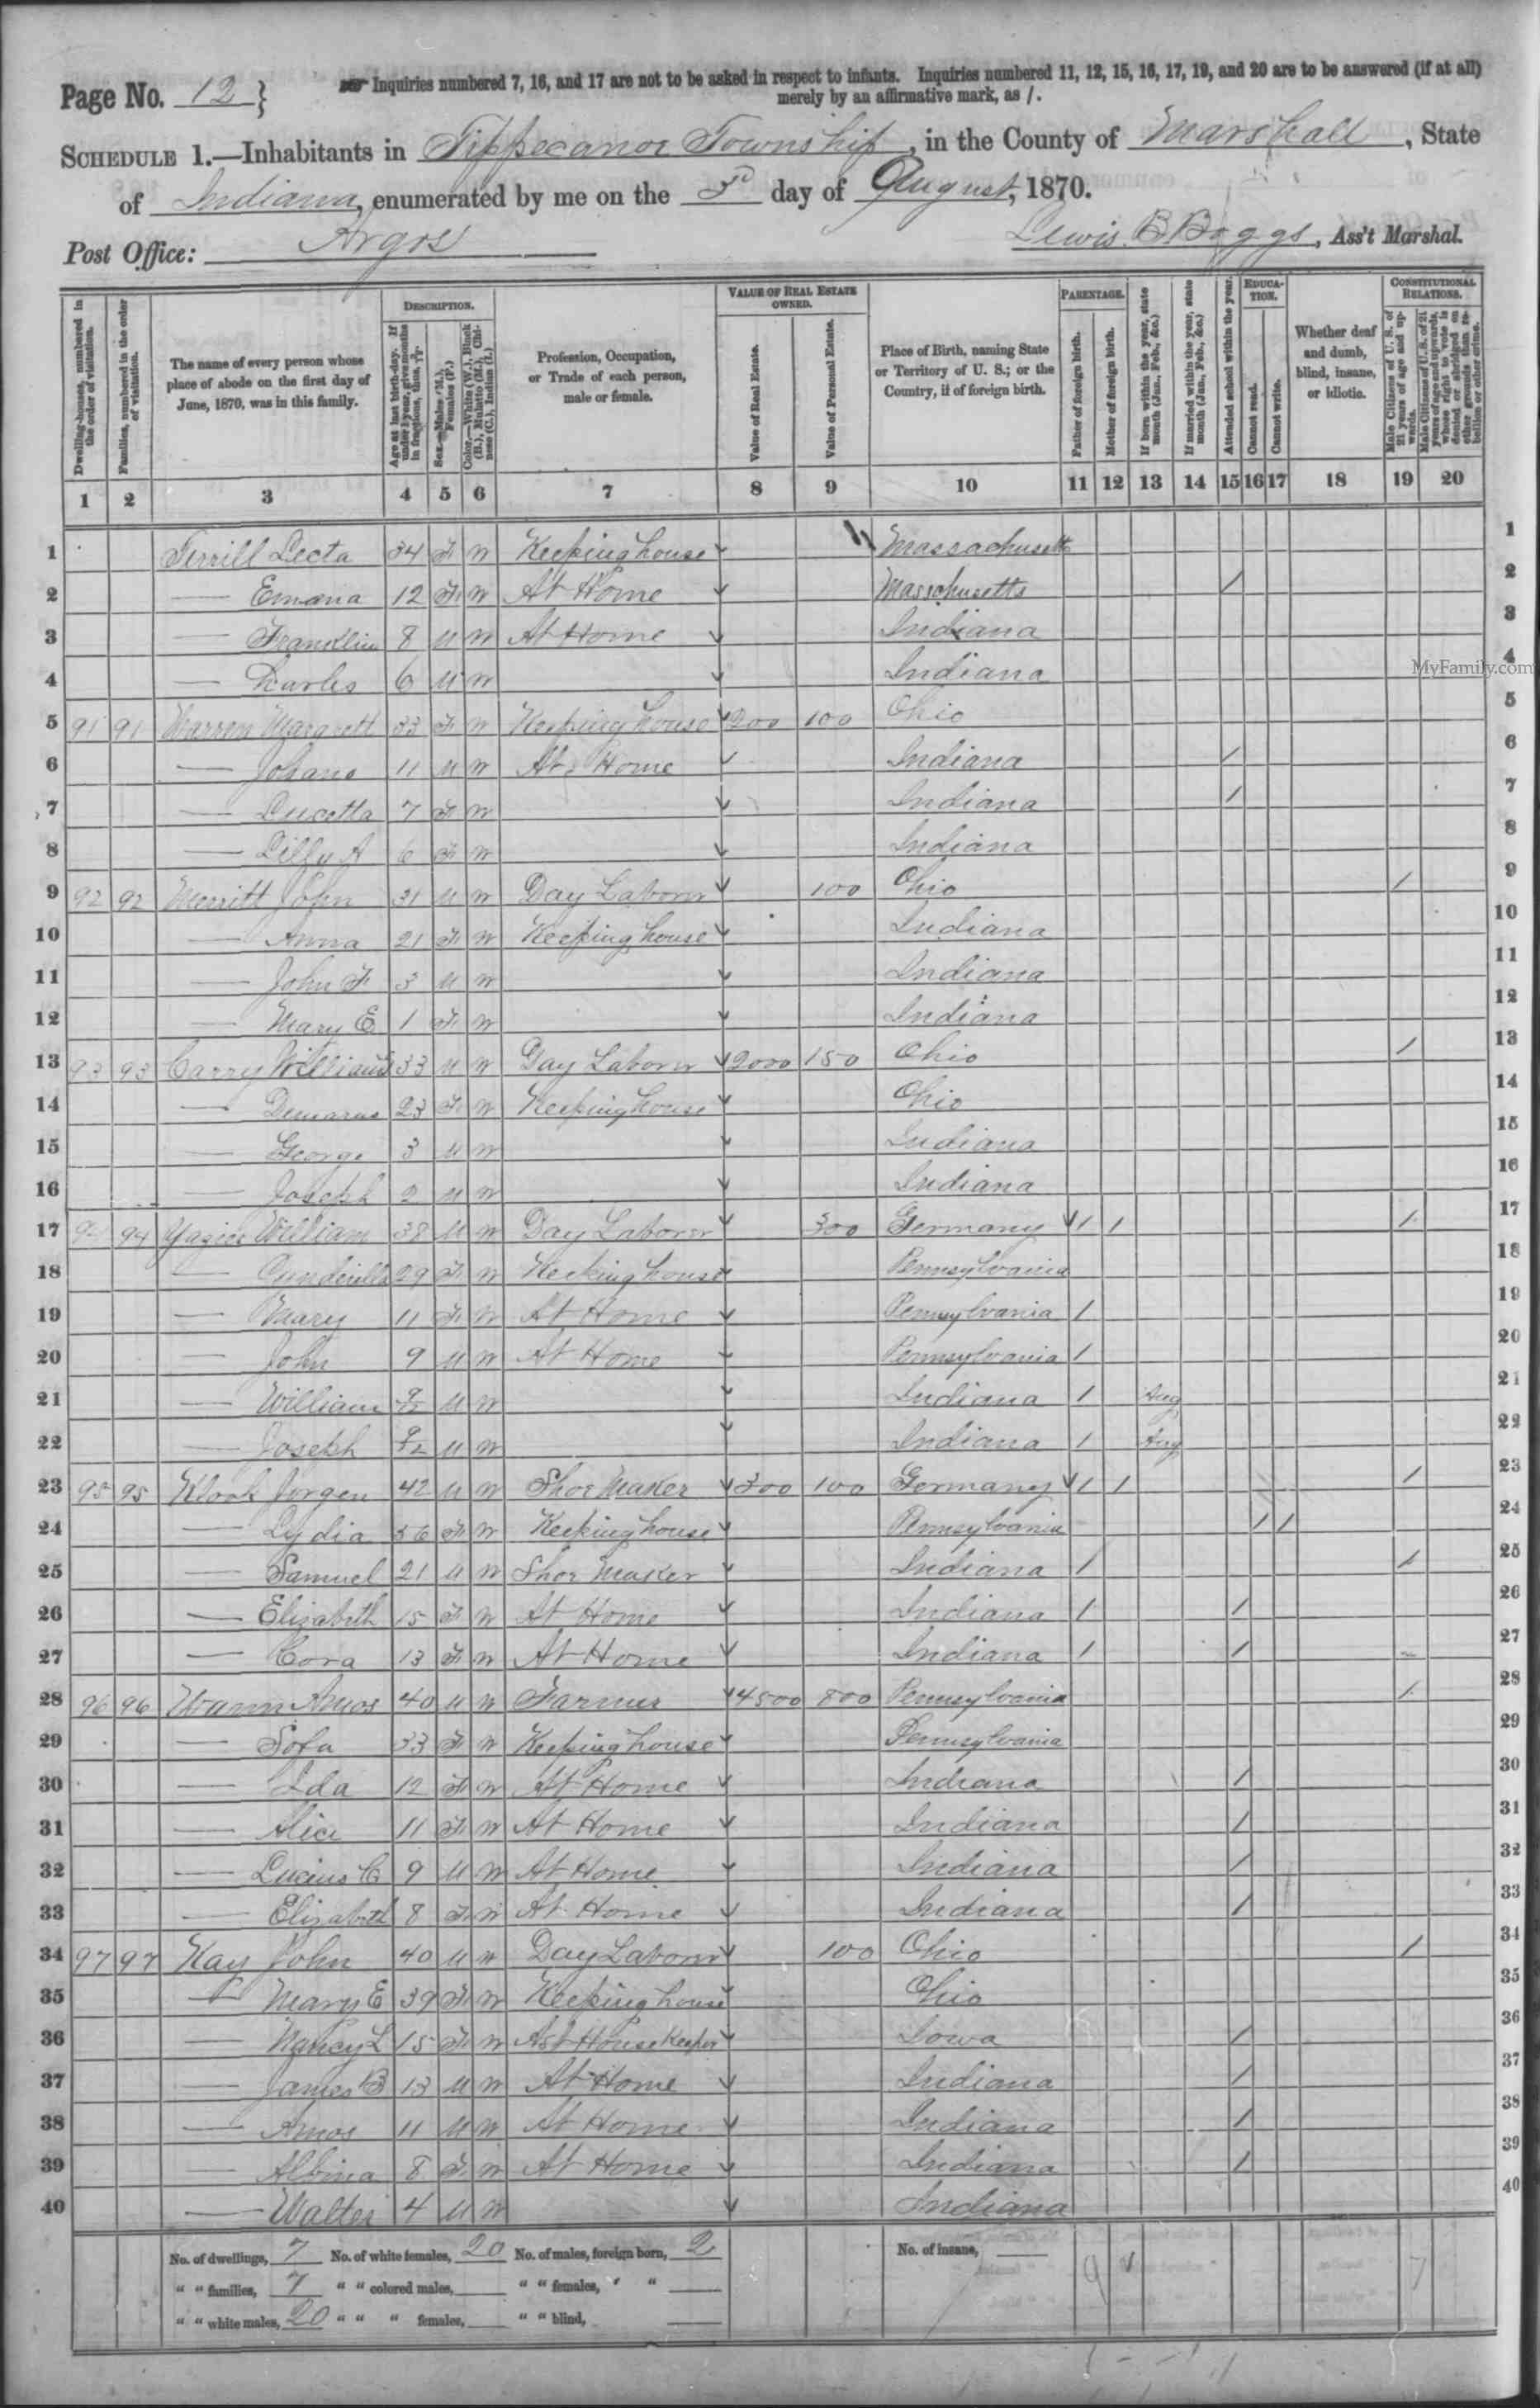 Page No. 12 } Inquiries numbered 7, 16, and 17 are not to be asked in respect to infants. Inquiries numbered 11, 12, 15, 16, 17, 19, and 20 are to be answered (if at all)
merely by an affirmative mark, as /.
SCHEDULE 1.—Inhabitants in Tippecanoe Township, in the County of Marshall, State
of Indiana, enumerated by me on the 5th day of August, 1870.
Post Office: Argos Lewis B Boggs, Ass't Marshal.
Dwelling-houses, numbered in the order of visitation.
Families, numbered in the order of visitation.
The name of every person whose place of abode on the first day of June, 1870, was in this family.
DESCRIPTION.
Age at last birth-day. If under 1 year, give months in fractions, thus, 3/12
Sex.—Males (M.), Females (F.)
Color.—White (W.), Black (B.), Mulatto (M.), Chinese (C.), Indian (I.)
Profession, Occupation, or Trade of each person, male or female.
VALUE OF REAL ESTATE OWNED.
Value of Real Estate.
Value of Personal Estate.
Place of Birth, naming State or Territory of U. S.; or the Country, if of foreign birth.
PARENTAGE.
Father of foreign birth.
Mother of foreign birth.
If born within the year, state month (Jan., Feb., &c.)
If married within the year, state month (Jan., Feb., &c.)
Attended school within the year.
EDUCATION.
Cannot read.
Cannot write.
Whether deaf and dumb, blind, insane, or idiotic.
CONSTITUTIONAL RELATIONS.
Male Citizens of U. S. of 21 years of age and upwards.
Male Citizens of U. S. of 21 years of age and upwards, whose right to vote is denied or abridged on other grounds than rebellion or other crime.
1 2 3 4 5 6 7 8 9 10 11 12 13 14 15 16 17 18 19 20
1 Terrill Lecta 34 F W Keeping house Massachusetts 1
2 — Emana 12 F W At Home Masschusetts / 2
3 — Franklin 8 M W At Home Indiana 3
4 — Charles 6 M W Indiana 4
MyFamily.com
5 91 91 Warren Margarett 33 F W Keeping house 200 100 Ohio 5
6 — 11 M W At Home Indiana / 6
7 — Lucetta 7 F W Indiana / 7
8 — Lilly A 6 F W Indiana 8
9 92 92 Merritt John 31 M W Day Laborer 100 Ohio / 9
10 — Anna 21 F W Keeping house Indiana 10
11 — John F 3 M W Indiana 11
12 — Mary E 1 F W Indiana 12
13 93 93 Carry William 33 M W Day Laborer 2000 150 Ohio / 13
14 — 23 F W Keeping house Ohio 14
15 — George 3 M W Indiana 15
16 — Joseph 2 M W Indiana 16
17 94 94 William 38 M W Day Laborer 300 Germany / / / 17
18 — 29 F W Keeping house Pennsylvania 18
19 — Mary 11 F W At Home Pennsylvania / 19
20 — John 9 M W At Home Pennsylvania / 20
21 — William 9/12 M W Indiana / Aug 21
22 — Joseph 9/12 M W Indiana / Aug 22
23 95 95 Jurgen 42 M W Shoe Maker 300 100 Germany / / / 23
24 — Lydia 56 F W Keeping house Pennsylvania / / 24
25 — Samuel 21 M W Shoe Maker Indiana / / 25
26 — Elizabeth 15 F W At Home Indiana / / 26
27 — Cora 13 F W At Home Indiana / / 27
28 96 96 Amos 40 M W Farmer 4500 800 Pennsylvania / 28
29 — Sofa 33 F W Keeping house Pennsylvania 29
30 — Ida 12 F W At Home Indiana / 30
31 — Alice 11 F W At Home Indiana / 31
32 — Lucius C 9 M W At Home Indiana / 32
33 — Elizabeth 8 F W At Home Indiana / 33
34 97 97 Kay John 40 M W Day Laborer 100 Ohio / 34
35 — Mary E 39 F W Keeping house Ohio 35
36 — Nancy L 15 F W Ast House Keeper Iowa / 36
37 — James B 13 M W At Home Indiana / 37
38 — Amos 11 M W At Home Indiana / 38
39 — Albina 8 F W At Home Indiana / 39
40 — Walter 4 M W Indiana 40
No. of dwellings, 7 No. of white females, 20 No. of males, foreign born, 2 No. of insane,
" " families, 7 " " colored males, " " females, " "
" " white males, 20 " " " females, " " blind,